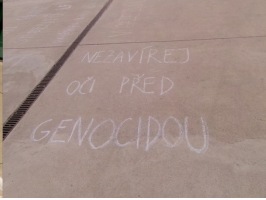 NEZAVÍREJ
OČI PŘED
GENOCIDOU